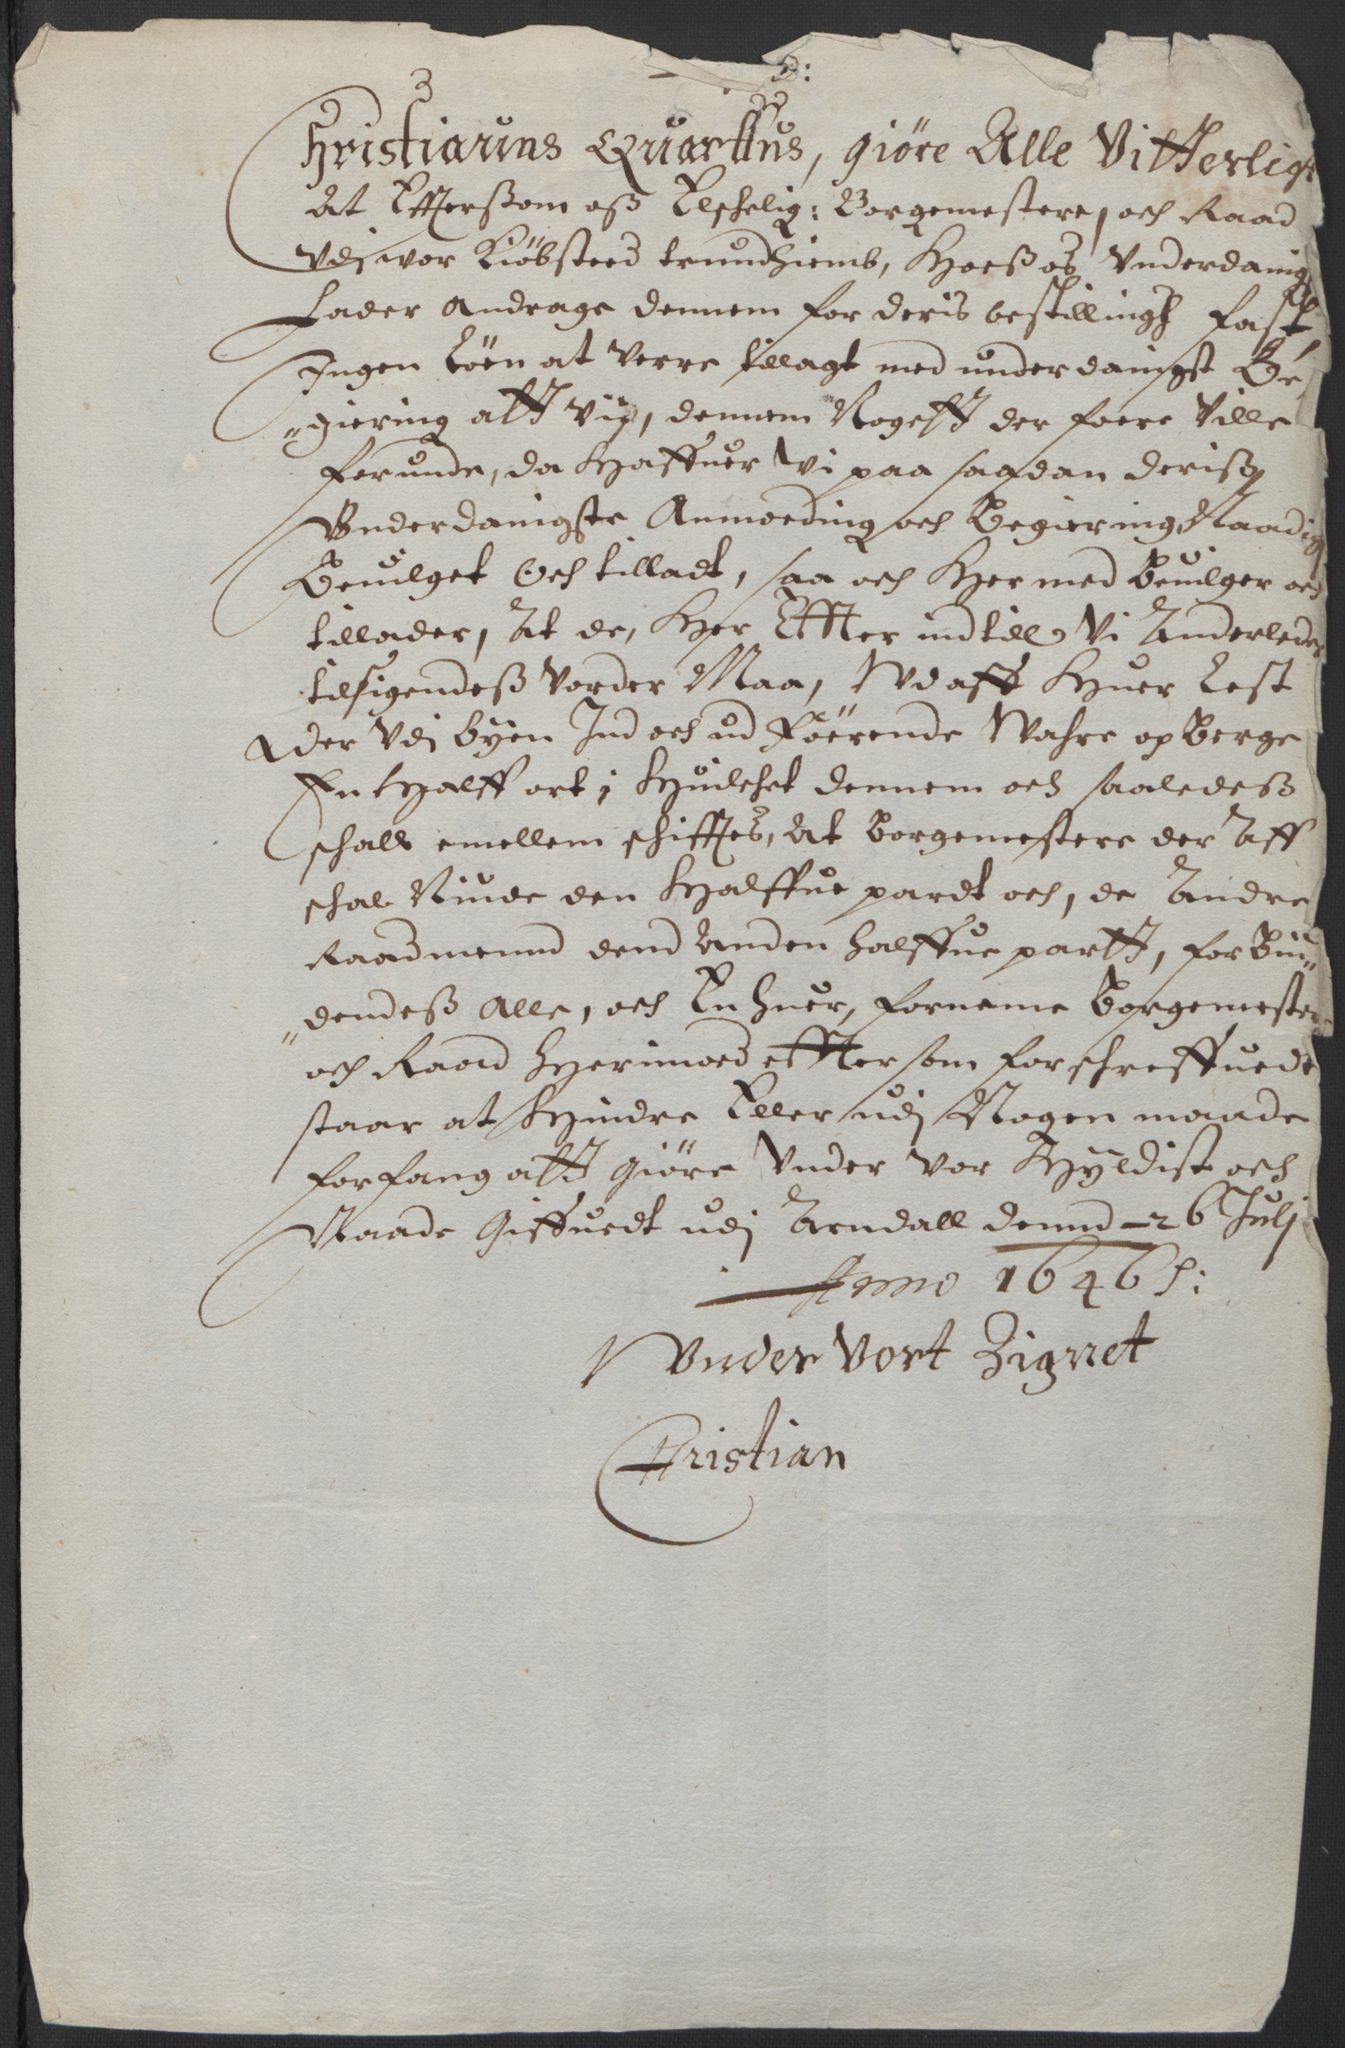 Christianus Quarttus, giöre Alle Vitterligt
At Efftersom oß Elschelig: Borgemestere, och Raad
Vdj wor Kiöbsted trundhiemb, Hoes oß Vnderdanig
Lader Andrage dennem for deris bestillingh fast
Ingen Löen at Verre tillagt med underdanigst Be
"giering att Vij, dennem Nogett der foere Ville
forunde, da Haffuer Vi paa saadan deriß
Vnderdanigste Anmoeding och Begiering, Naadig
Beuilget Och tilladt, saa och Her med Beuilger och
tillader, At de, Her Effter indtill Vi Anderledes
tilsigendeß Vorder Maa, Vd aff Huer Lest
der Vdj byen Ind och ud Föerende Wahre opberge
En Halff ort, Huilchet dennem och saaledeß
schall emellem schifftes, At Borgemestere der Aff
schal Niude den Halffue pardt och, de Andre
Raadmennd dend Anden halffue partt, forbiu"
"dendeß Alle, och En huer, forneme Borgemestere
och Raad Herimoed effter som forschreffuedt
staar at Hindre Eller udj Nogen maade
forfang att giöre Vnder Vor Hyldist och
Naade Giffuedt udj Arndall dennd 26 Julj
Anno 1646:
Vnder Vort Zignet
Christian